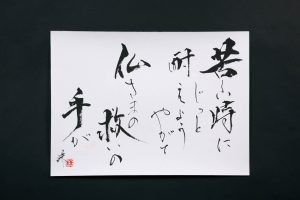 苦しい時に
じっと
耐えよう
やがて
仏さまの
救いの
手が